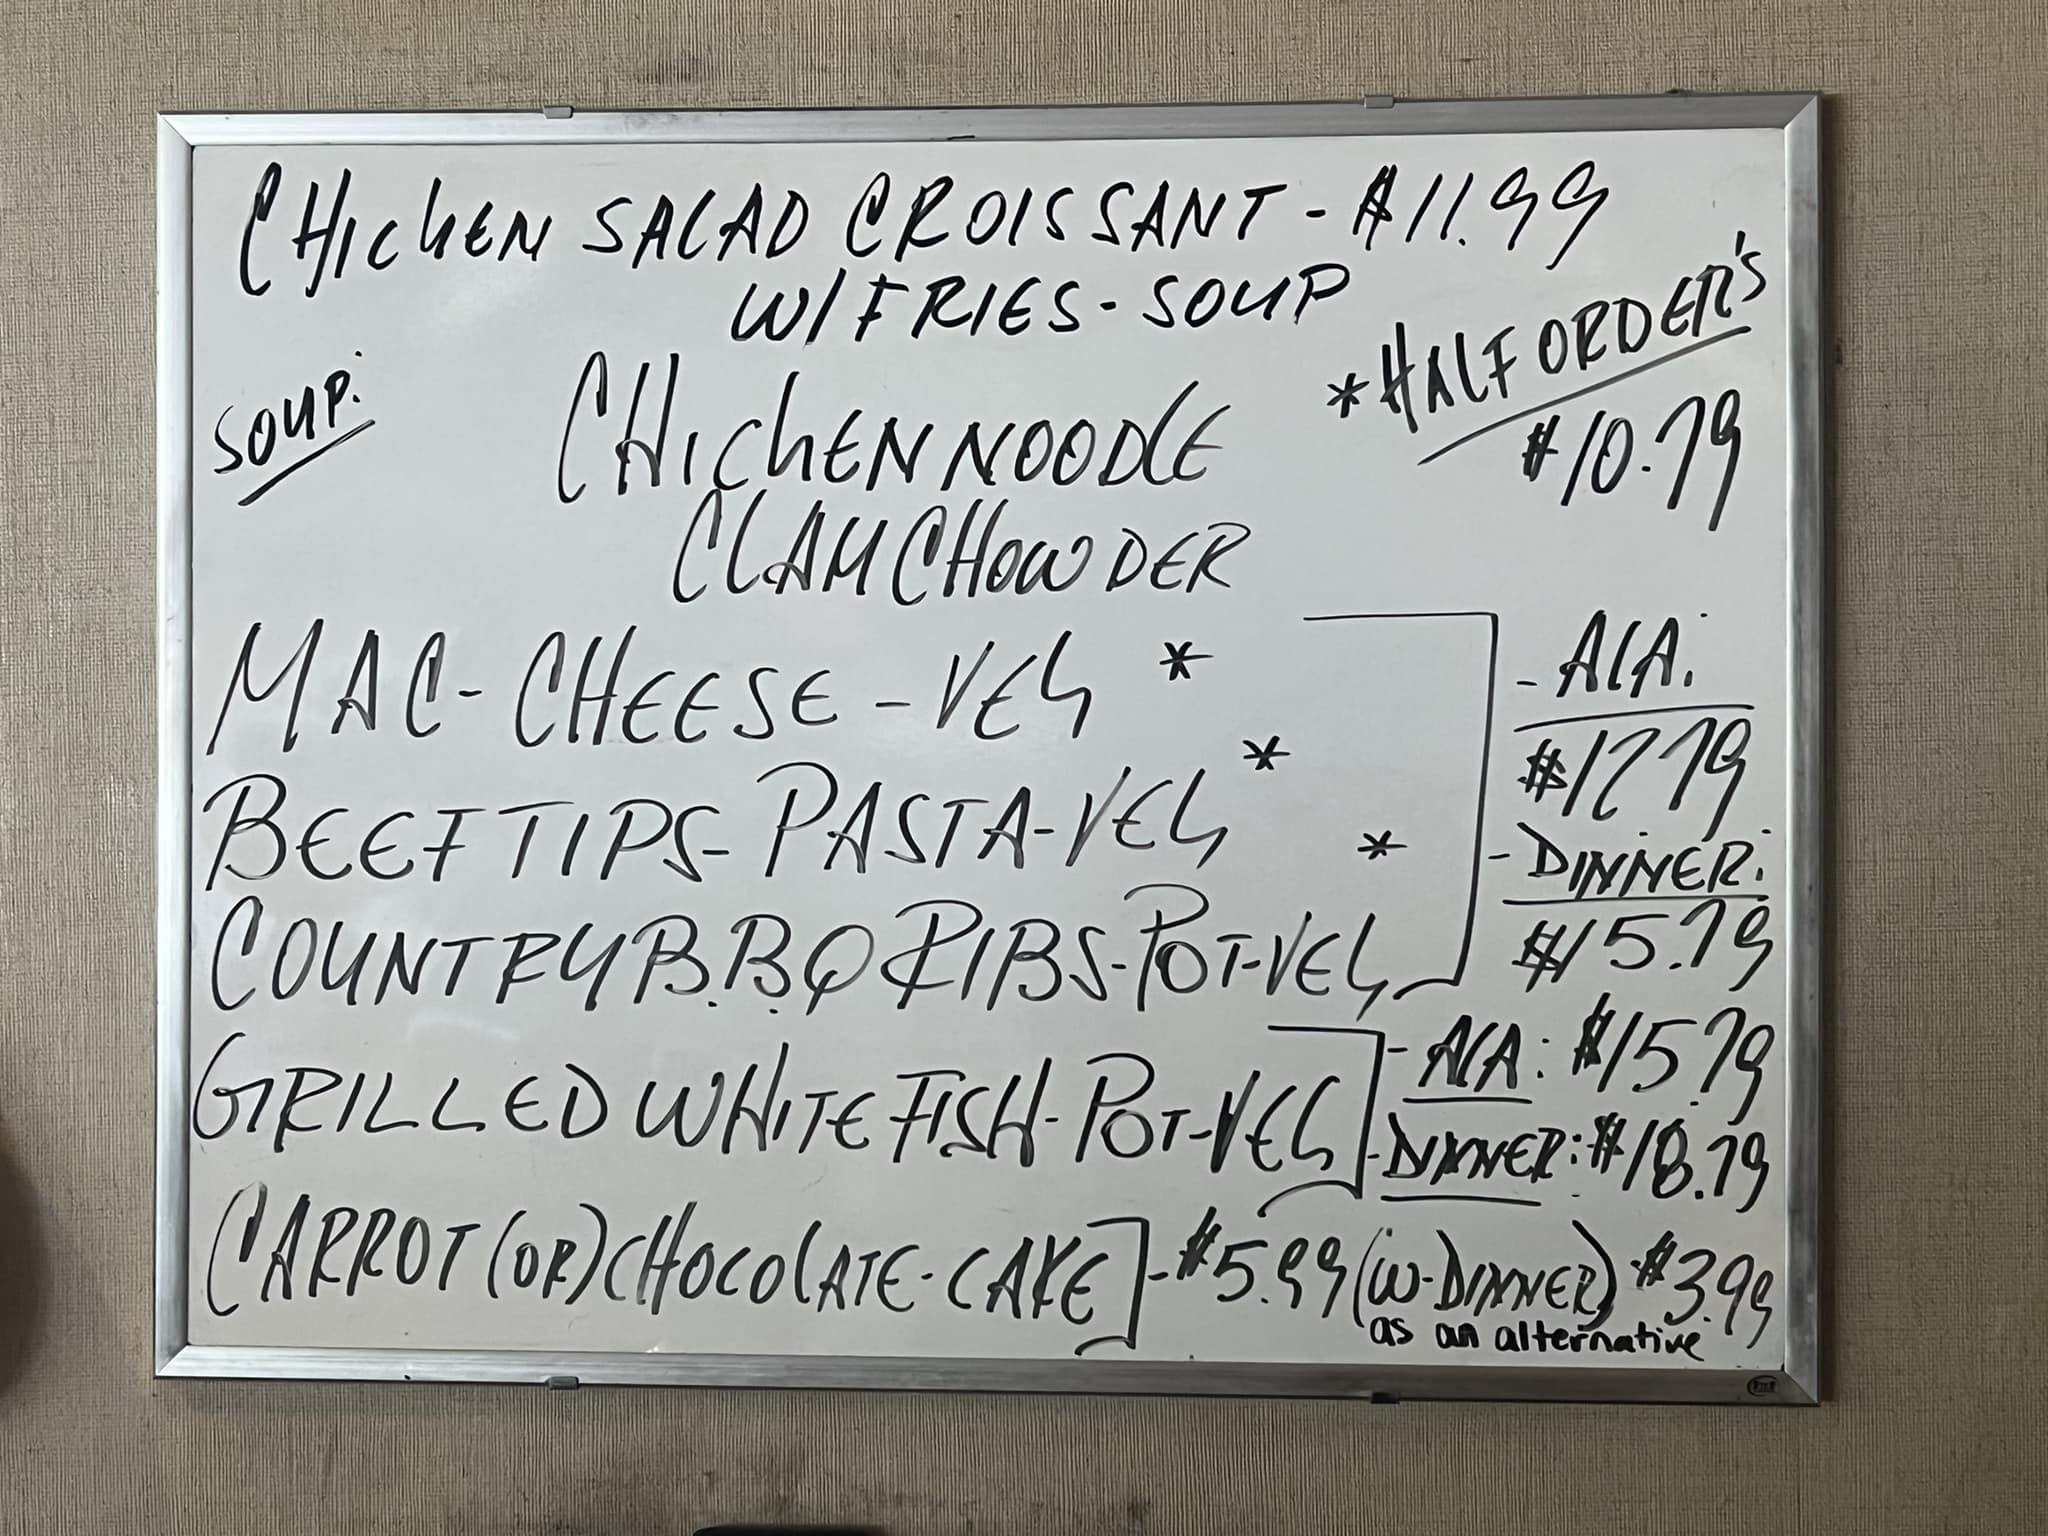 CHICKEN SALAD CROISSANT - $11.99
W/FRIES - SOUP
*HALF ORDER'S
$10.79
SOUP:
CHICKEN NOODLE
CLAM CHOWDER
MAC - CHEESE - VEG *
BEEF TIPS - PASTA - VEG *
COUNTRY B.B.Q RIBS - POT - VEG *
- ALA:
$12.79
- DINNER:
$15.79
GRILLED WHITE FISH - POT - VEG
- ALA: $15.79
- DINNER: $18.79
CARROT (OR) CHOCOLATE - CAKE - $5.99 (W - DINNER) $3.99
as an alternative